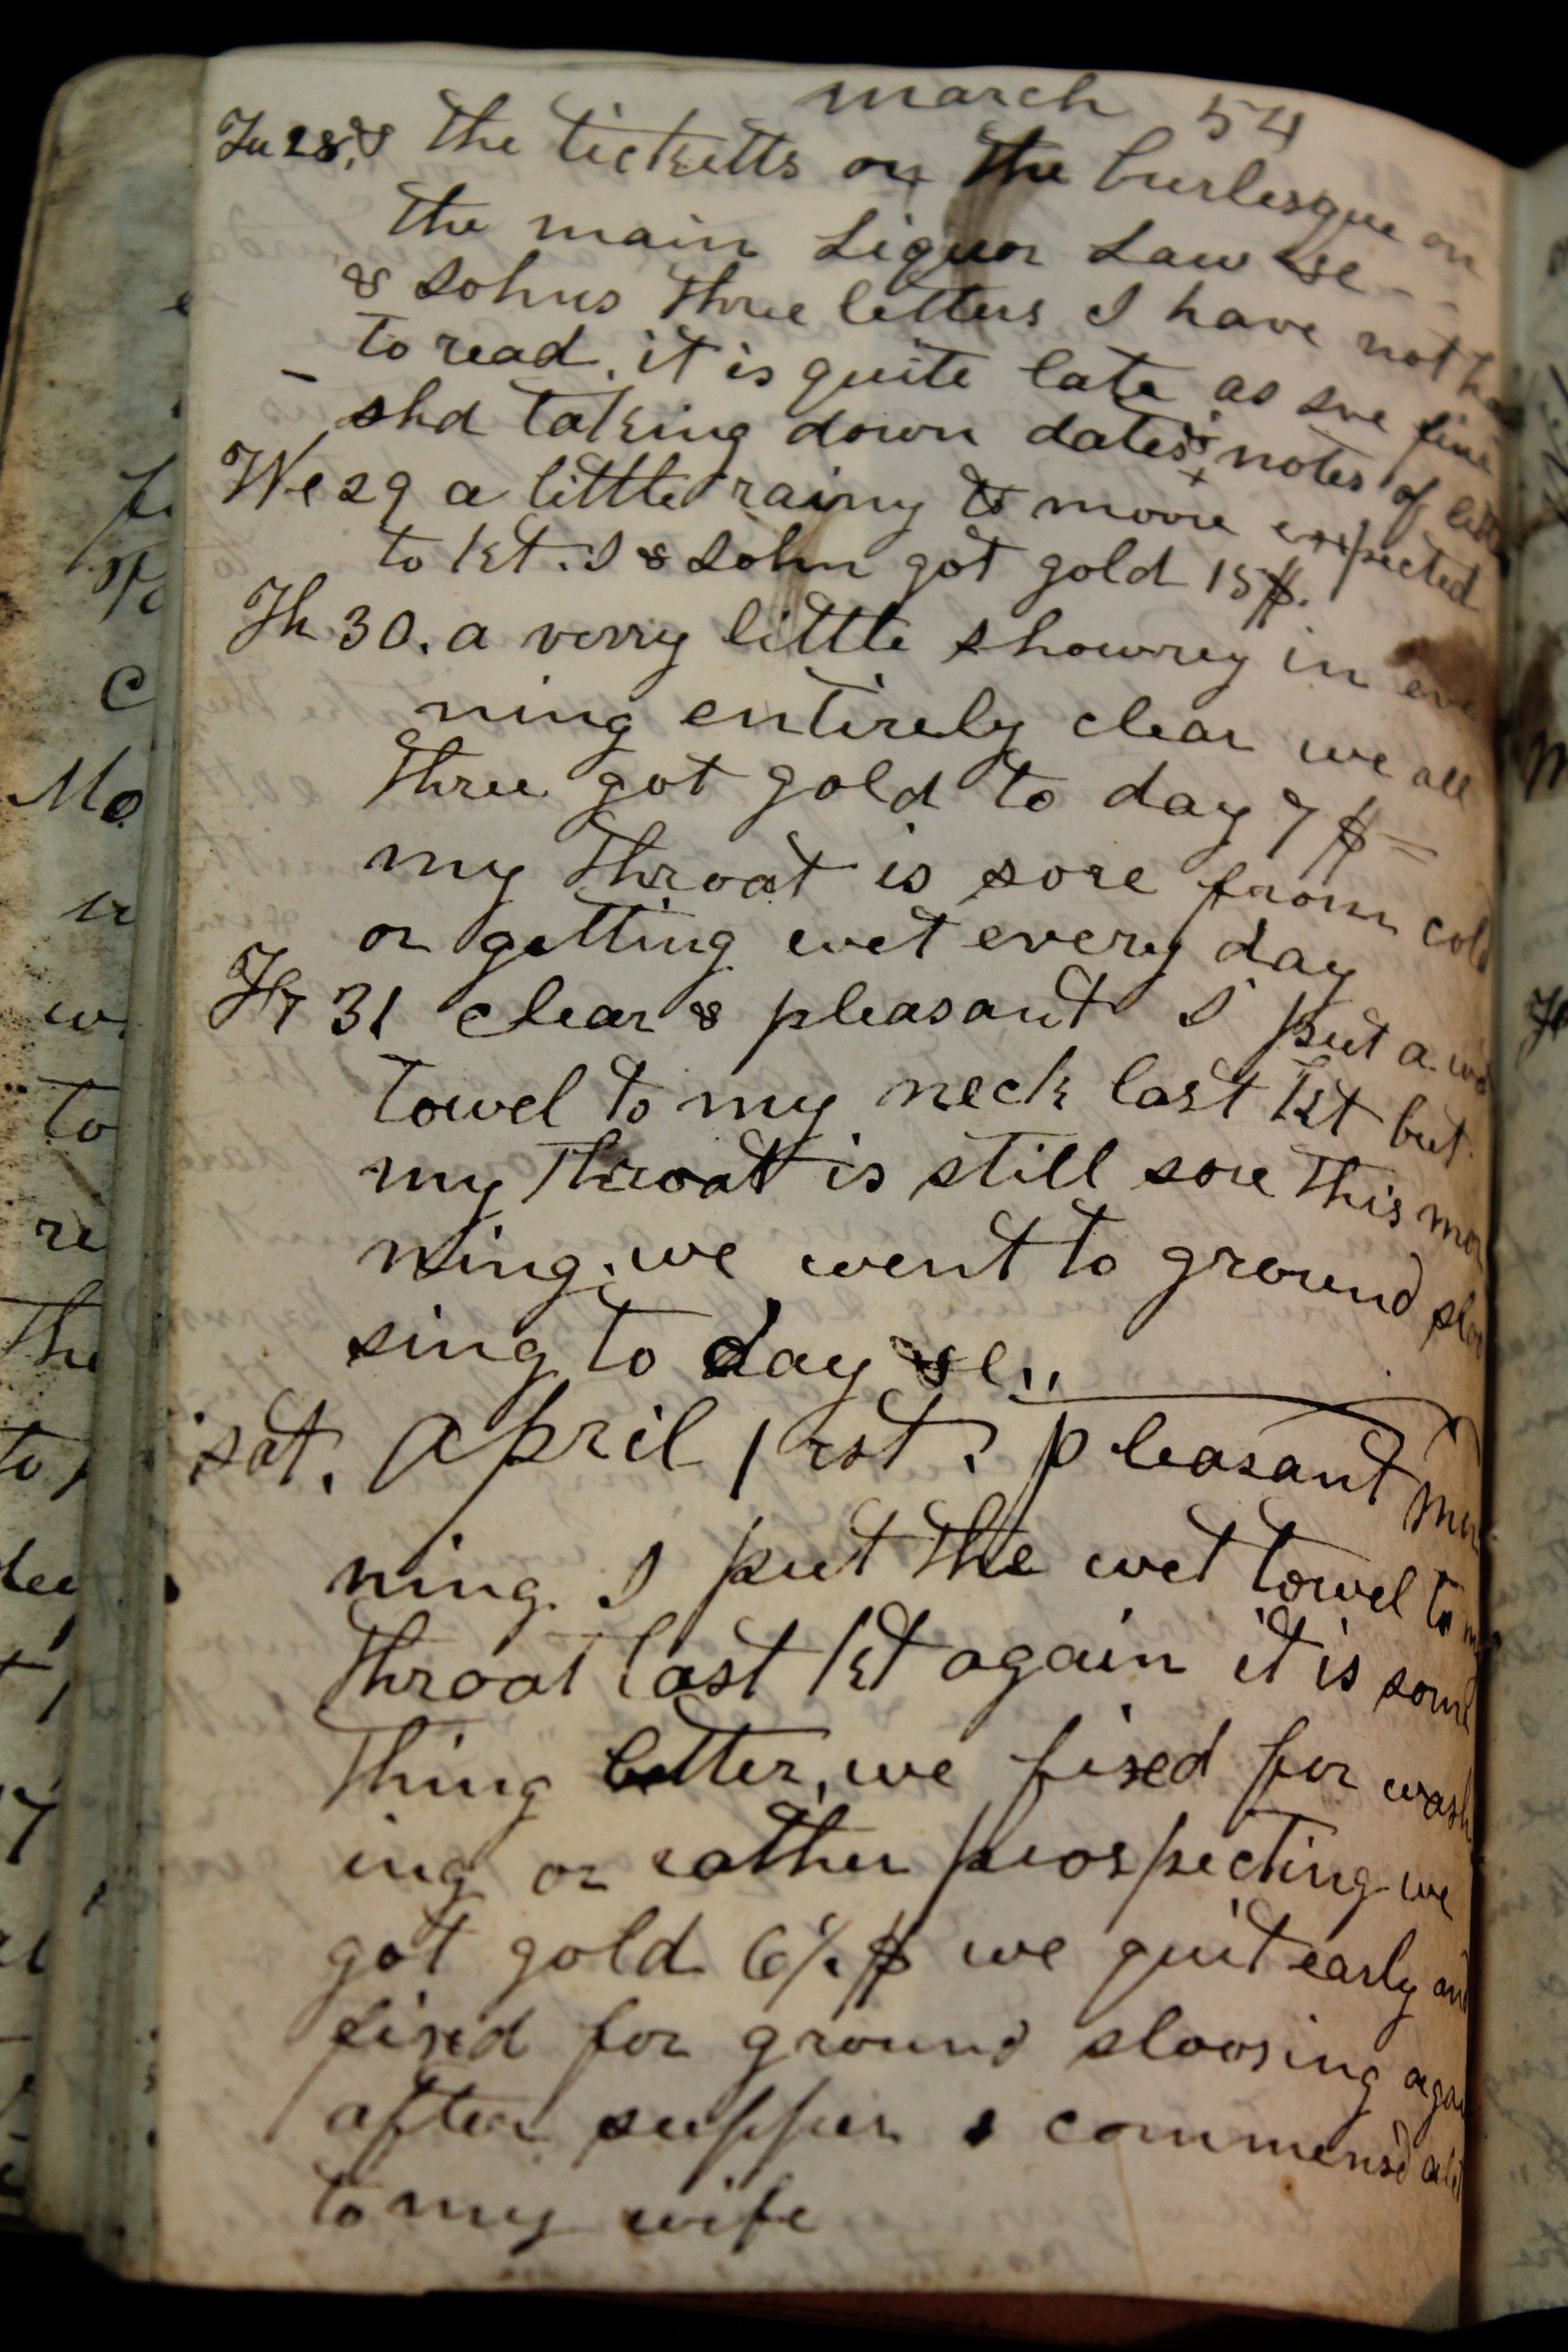 march 54
Tu 28. & the ticketts on the burlesque on
the main Liquor Law &c - -
& Johns three letters I have not
to read, it is quite late as we fini
- shd taking down dates & notes of
We 29 a little rainy & moore expected
to kt. I & John got gold 15$.
Th 30. a verry little showrey in eve
ning entirely clear we all
three got gold to day 7 $ =
my throat is sore from cold
or getting wet every day
Fr 31 clear & pleasant I put a
towel to my neck last kt but
my throat is still sore this mor
ning. we went to ground sloo
sing to day &c ..
sat. April 1 rst. pleasant mor
ning. I put the wet towel to
throat last kt again it is some
thing better, we fixed for wash
ing or rather prospecting we
got gold $ we quit early and
fixed for ground sloosing again
after supper & commensd
to my wife
Mo
to
re
the
to